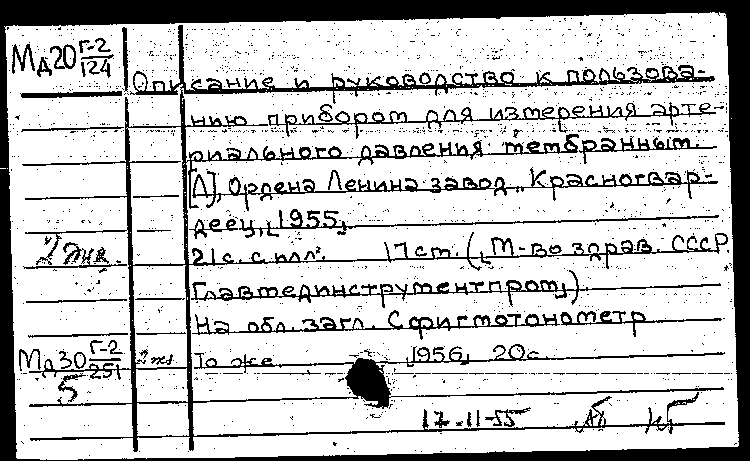 Мд20 Г-2/124
Описание и руководство к пользова-
нию прибором для измерения арте-
риального давления мембранным.
[Л], Ордена Ленина завод „Красногвар-
деец„, 1955,
2 экз. 21 с. с илл. 17 см. (М-во здрав. СССР.
Главмединструментпром,)
На обл. загл. Сфигмотонометр
Мд30 Г-2/251 2 экз То же. 1956, 20 с.
5
17-11-55